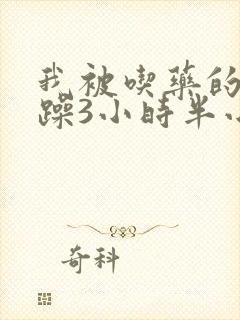 我被喫藥的
躁3小時半
奇科